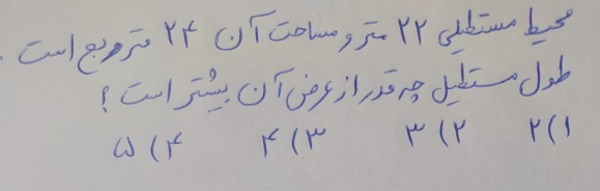 محیط مستطیلی ۲۲ متر و مساحت آن ۲۴ متر مربع است.
طول مستطیل چه قدر از عرض آن بیشتر است؟
۱) ۲ ۲) ۳ ۳) ۴ ۴) ۵